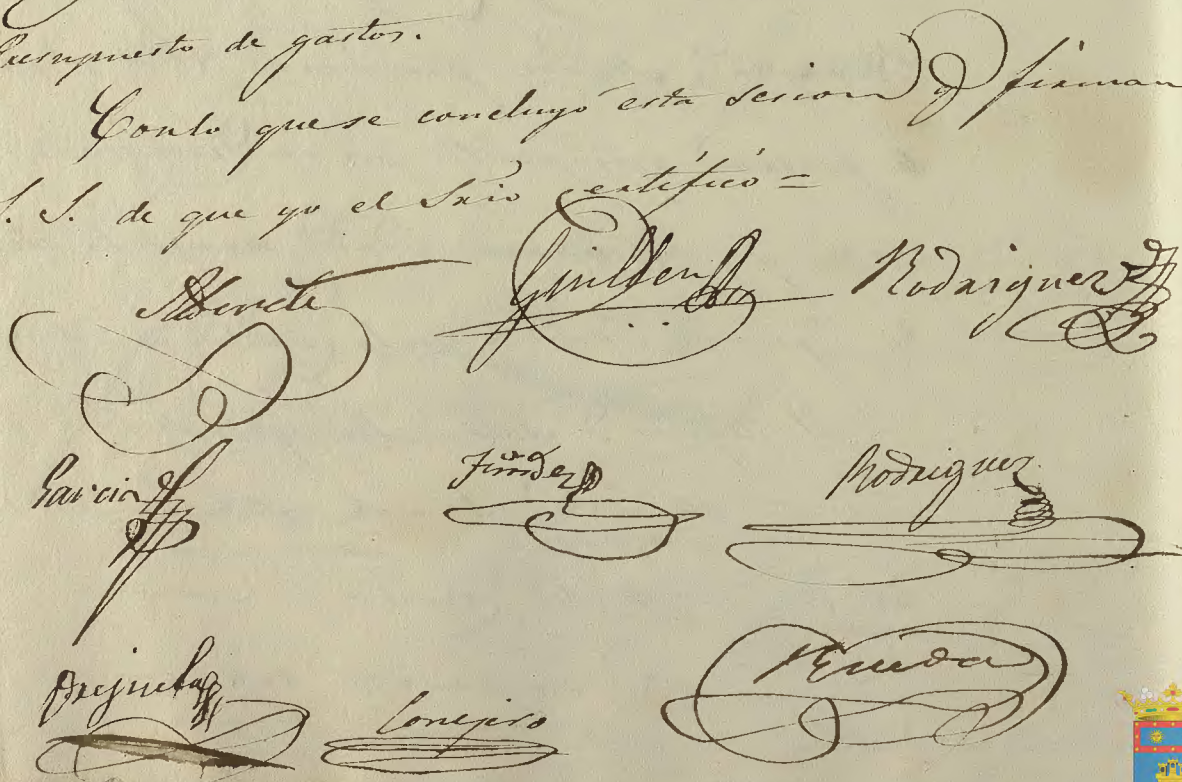 Presupuesto de gastos.
Con lo que se concluyó esta sesion y firman
S. S. de que yo el Srio certifico =
Alberete Guillen Rodriguez
Garcia Frndez Rodriguez
Orejuela Conejero Rueda